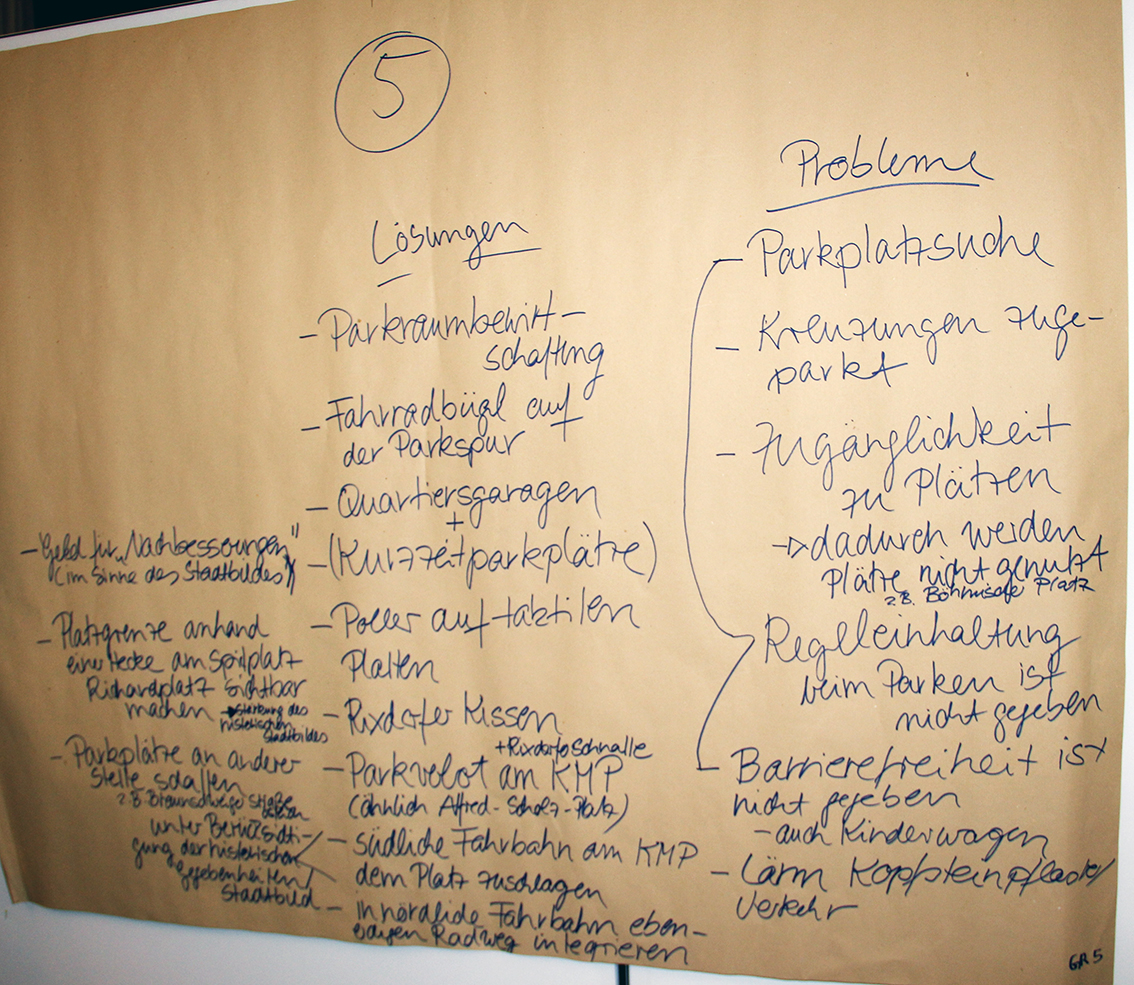 5
Lösungen
- Parkraumbewirt-
schaftung
- Fahrradbügel auf
der Parkspur
- Quartiersgaragen
+
- (Kurzzeitparkplätze)
- Poller auf taktilen
Platten
- Rixdorfer Kissen
+ Rixdorfer Schnalle
- Parkverbot am KMP
(ähnlich Alfred-Scholz-Platz)
- südliche Fahrbahn am KMP
dem Platz zuschlagen
- In nördliche Fahrbahn eben-
erdigen Radweg integrieren
- Geld für „Nachbesserungen"
(im Sinne des Stadtbildes)
- Platzgrenze anhand
einer Hecke am Spielplatz
Richardplatz sichtbar
machen → Stärkung des
historischen
Stadtbildes
- Parkplätze an anderer
Stelle schaffen
z.B. Braunschweiger Straße
unter Berücksichti-
gung der historischen
Gegebenheiten/
Stadtbild
Probleme
- Parkplatzsuche
- Kreuzungen zuge-
parkt
- Zugänglichkeit
zu Plätzen
→ dadurch werden
Plätze nicht genutzt
z.B. Böhmischer Platz
Regeleinhaltung
beim Parken ist
nicht gegeben
- Barrierefreiheit ist
nicht gegeben
- auch Kinderwagen
- Lärm Kopfsteinpflaster/
Verkehr
GR 5